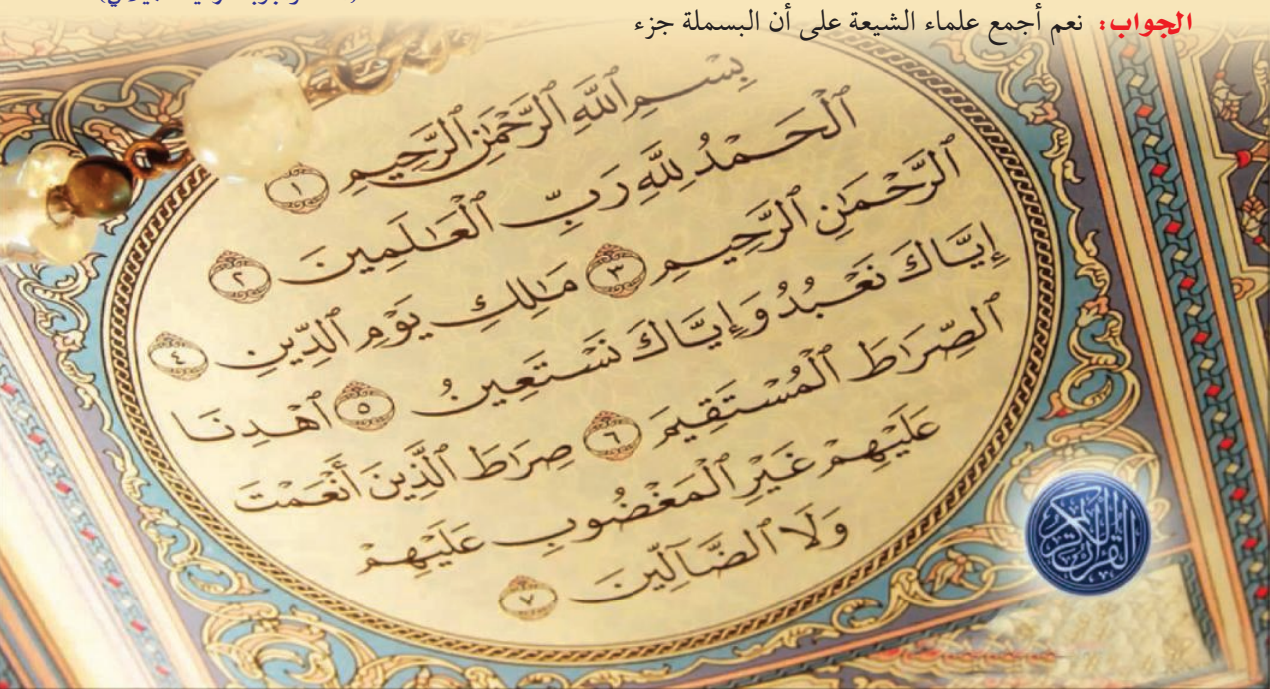 الجواب: نعم أجمع علماء الشيعة على أن البسملة جزء
بِسْمِ ٱللَّهِ ٱلرَّحْمَٰنِ ٱلرَّحِيمِ ١
ٱلْحَمْدُ لِلَّهِ رَبِّ ٱلْعَٰلَمِينَ ٢
ٱلرَّحْمَٰنِ ٱلرَّحِيمِ ٣ مَٰلِكِ يَوْمِ ٱلدِّينِ ٤
إِيَّاكَ نَعْبُدُ وَإِيَّاكَ نَسْتَعِينُ ٥ ٱهْدِنَا
ٱلصِّرَٰطَ ٱلْمُسْتَقِيمَ ٦ صِرَٰطَ ٱلَّذِينَ أَنْعَمْتَ
عَلَيْهِمْ غَيْرِ ٱلْمَغْضُوبِ عَلَيْهِمْ
وَلَا ٱلضَّآلِّينَ ٧
القرآن الكريم